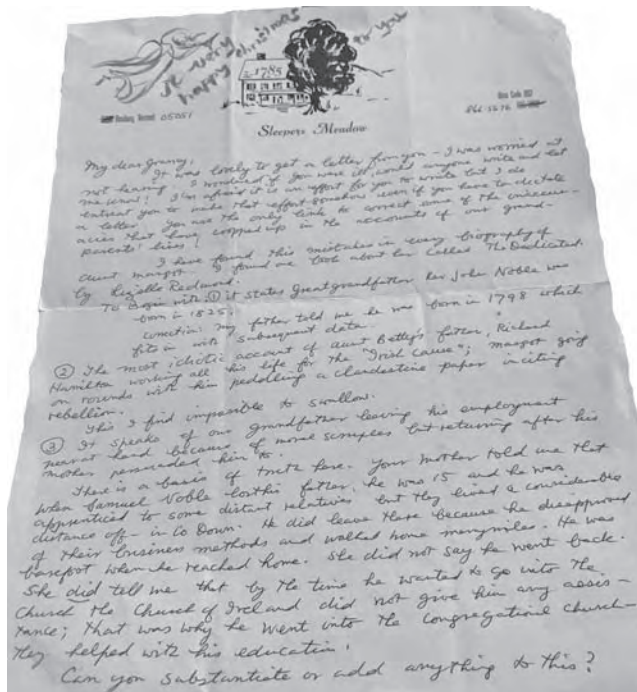 A very
happy christmas
to you
1785
Roxbury Vermont 05051
Area Code 802
866-5576
Sleepers Meadow
My dear Granny,
It was lovely to get a letter from you – I was worried at
not hearing. I wondered if you were ill, would anyone write and let
me know! I'm afraid it is an effort for you to write but I do
entreat you to make that effort somehow even if you have to dictate
a letter. You are the only link to correct some of the inaccur-
acies that have cropped up in the accounts of our grand-
parents' lives!
I have found this mistakes in every biography of
aunt margot. I found one book about her called The Dedicated.
by Rejollo Redmond.
To Begin with: ① it states Great grandfather Rev John Noble was
born in 1825.
correction: my father told me he was born in 1798 which
fits in with subsequent data.
② The most idiotic account of aunt Betty's father, Richard
Hamilton working all his life for the "Irish Cause"; margot going
on rounds with him peddling a clandestine paper inciting
rebellion.
This I find impossible to swallow.
③ It speaks of our grandfather leaving his employment
near at hand because of moral scruples but returning after his
mother persuaded him to.
There is a basis of truth here. Your mother told me that
when Samuel Noble lost his father, he was 15 and he was
apprenticed to some distant relatives but they lived a considerable
distance off – in Co Down. He did leave there because he disapproved
of their business methods and walked home many miles. He was
barefoot when he reached home. She did not say he went back.
She did tell me that by the time he wanted to go into the
Church the Church of Ireland did not give him any assis-
tance; that was why he went into the Congregational church –
they helped with his education.
Can you substantiate or add anything to this?